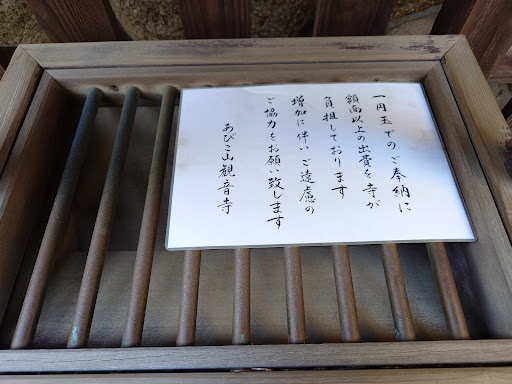 一円玉でのご奉納に
額面以上の出費を寺が
負担しております
増加に伴いご遠慮の
ご協力をお願い致します
あびこ山観音寺